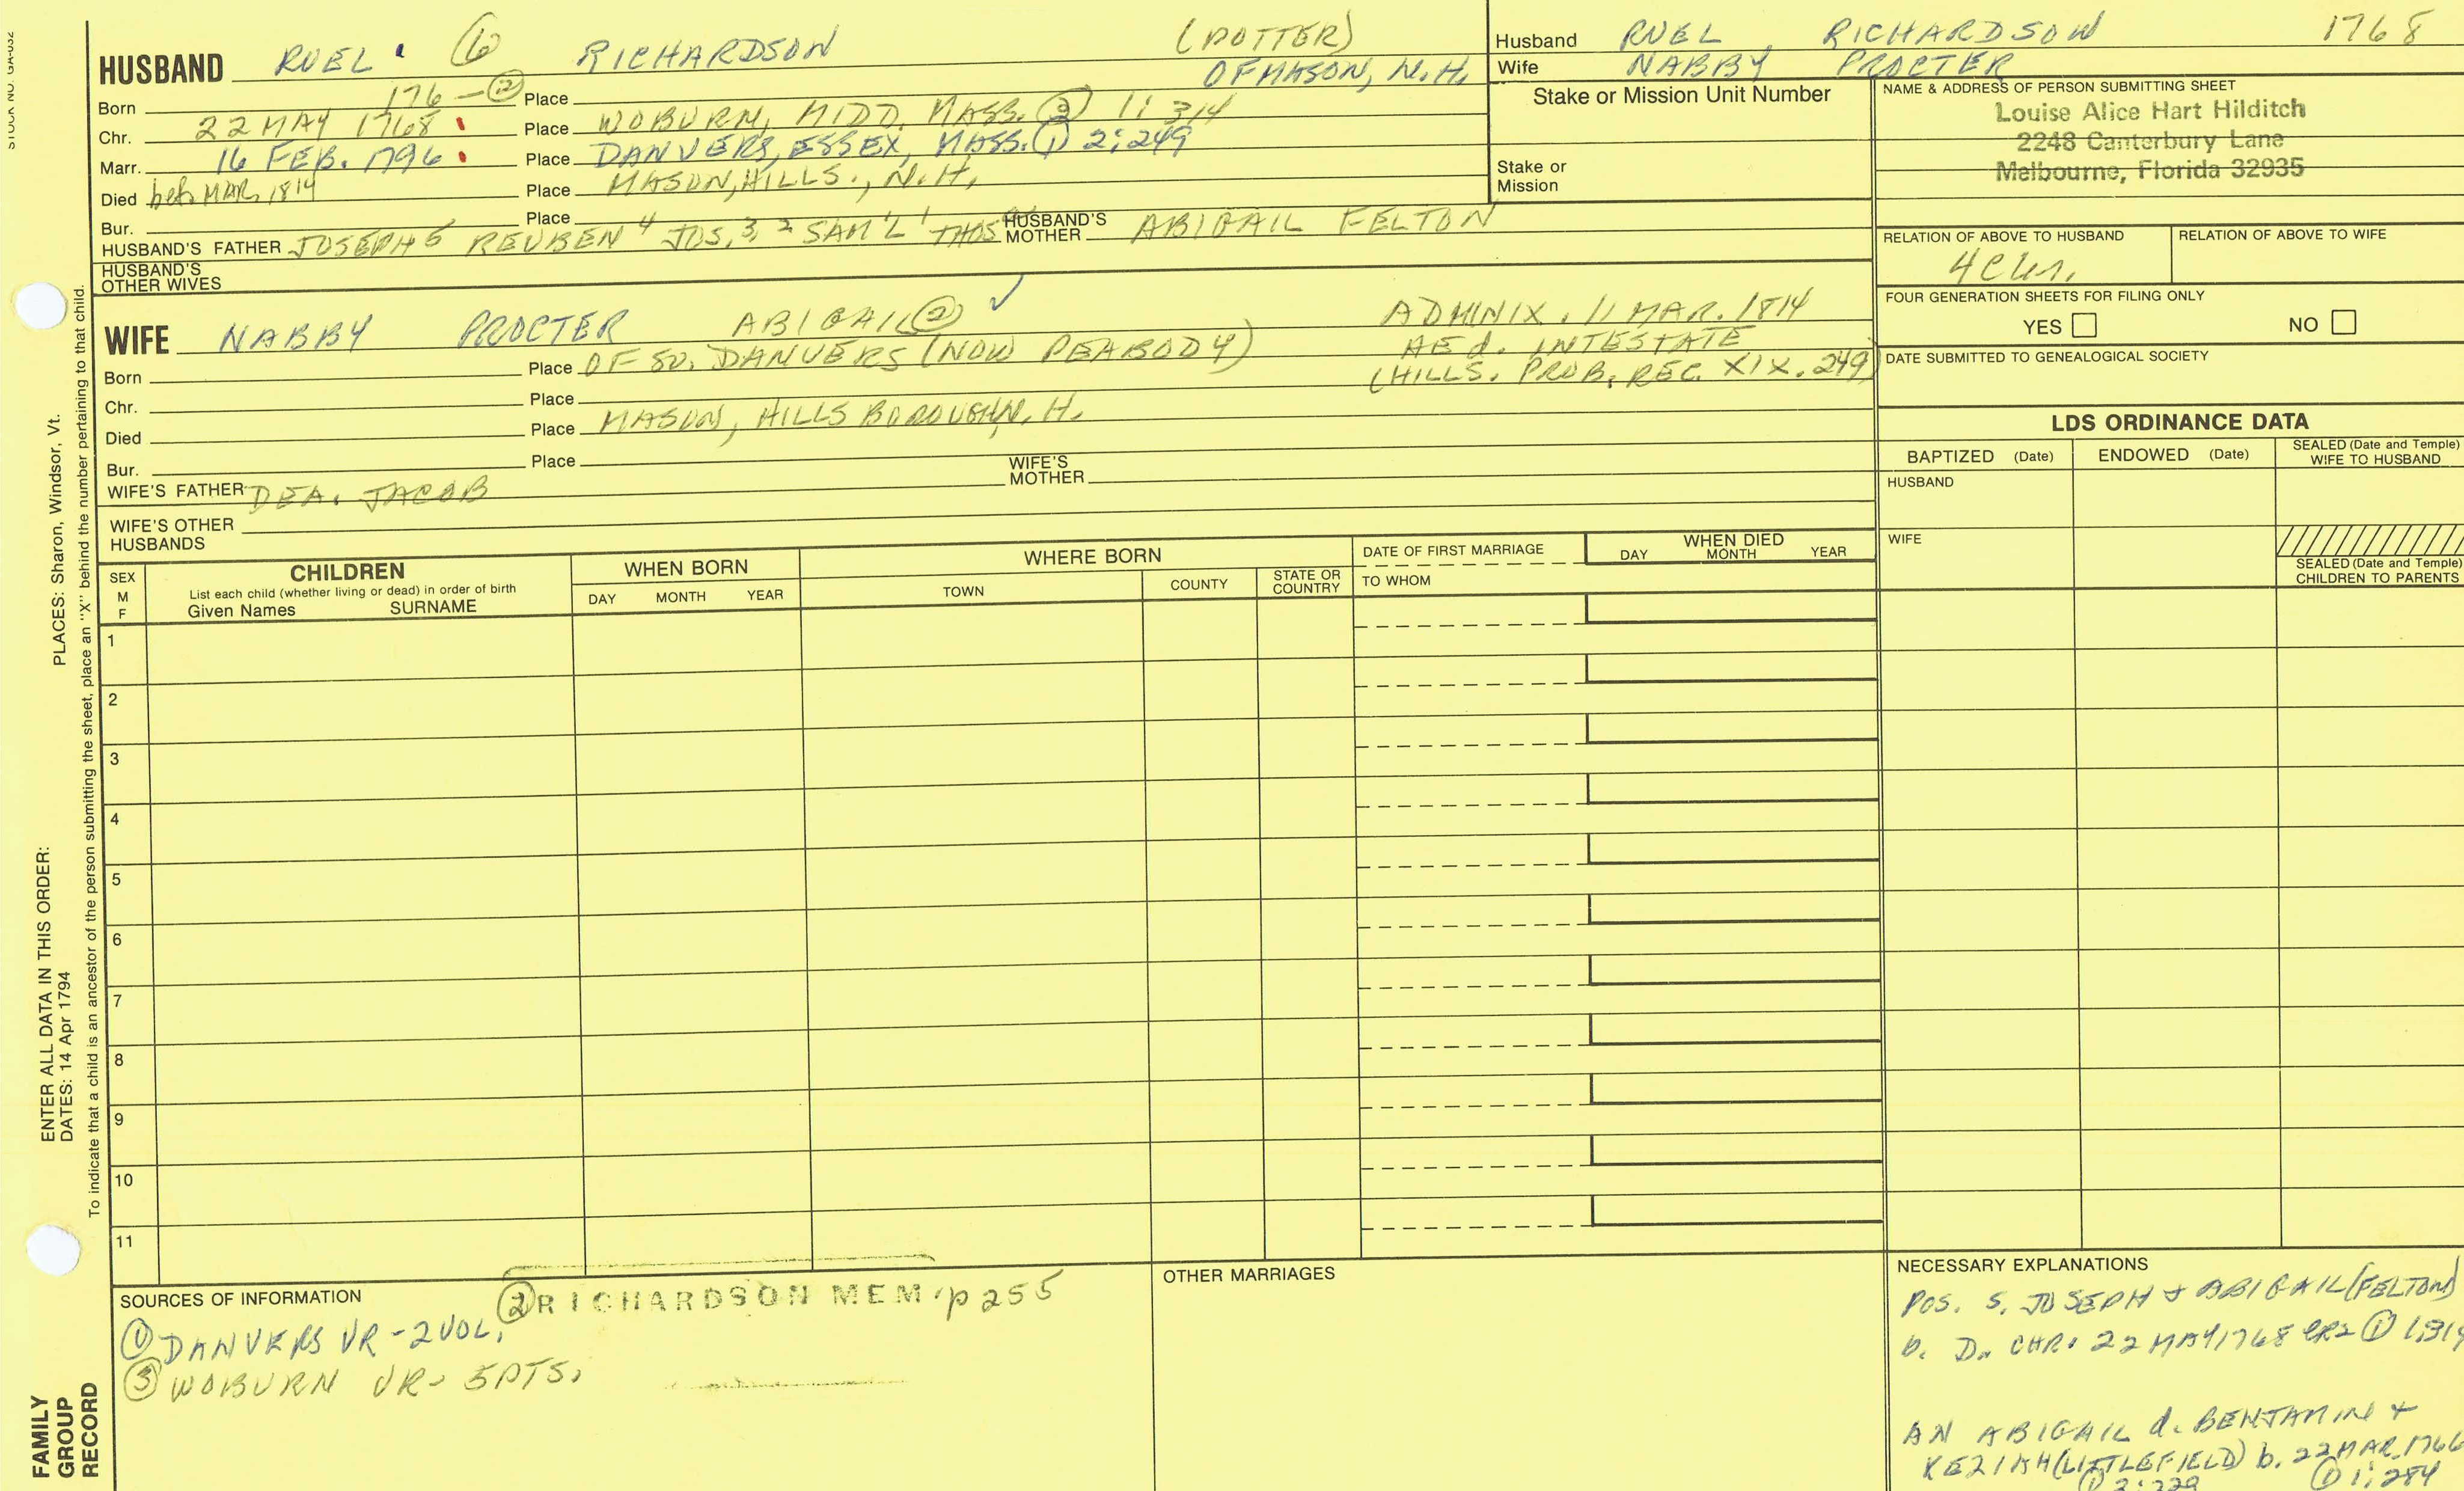 STOCK NO. GA-032
HUSBAND RUEL 6 RICHARDSON (POTTER)
OF MASON, N.H.
Born 176 - ② Place
Chr. 22 MAY 1768 Place WOBURN, MIDD. MASS. ③ 1:314
Marr. 16 FEB. 1796 Place DANVERS, ESSEX, MASS. ① 2:249
Died bef. MAR. 1814 Place MASON, HILLS., N.H.
Bur. Place
HUSBAND'S FATHER JOSEPH 5 REUBEN 4 JOS. 3, 2 SAM'L 1 THOS HUSBAND'S MOTHER ABIGAIL FELTON
HUSBAND'S OTHER WIVES
Husband RUEL RICHARDSON 1768
Wife NABBY PROCTER
Stake or Mission Unit Number
Stake or
Mission
NAME & ADDRESS OF PERSON SUBMITTING SHEET
Louise Alice Hart Hilditch
2248 Canterbury Lane
Melbourne, Florida 32935
RELATION OF ABOVE TO HUSBAND
4C
RELATION OF ABOVE TO WIFE
FOUR GENERATION SHEETS FOR FILING ONLY
YES NO
DATE SUBMITTED TO GENEALOGICAL SOCIETY
WIFE NABBY PROCTER ABIGAIL ② ✓
ADMINIX. 11 MAR. 1814
d. INTESTATE
(HILLS. PROB. REC. XIX. 249)
Born Place OF SO. DANVERS (NOW PEABODY)
Chr. Place
Died Place MASON, HILLSBOROUGH, N.H.
Bur. Place
WIFE'S FATHER DEA. JACOB WIFE'S MOTHER
WIFE'S OTHER HUSBANDS
LDS ORDINANCE DATA
BAPTIZED (Date) ENDOWED (Date) SEALED (Date and Temple) WIFE TO HUSBAND
HUSBAND
WIFE
SEALED (Date and Temple) CHILDREN TO PARENTS
SEX M F
CHILDREN
List each child (whether living or dead) in order of birth
Given Names SURNAME
WHEN BORN
DAY MONTH YEAR
WHERE BORN
TOWN COUNTY STATE OR COUNTRY
DATE OF FIRST MARRIAGE
TO WHOM
WHEN DIED
DAY MONTH YEAR
1
2
3
4
5
6
7
8
9
10
11
PLACES: Sharon, Windsor, Vt.
ENTER ALL DATA IN THIS ORDER:
DATES: 14 Apr 1794
To indicate that a child is an ancestor of the person submitting the sheet, place an "X" behind the number pertaining to that child.
FAMILY
GROUP
RECORD
SOURCES OF INFORMATION
② RICHARDSON MEM. p 255
① DANVERS VR - 2 VOL.
③ WOBURN VR - 5 PTS.
OTHER MARRIAGES
NECESSARY EXPLANATIONS
POS. S. JOSEPH + ABIGAIL (FELTON)
b. D. CHR. 22 MAY 1768 ①
AN ABIGAIL d. BENJAMIN +
KEZIAH (LITTLEFIELD) b. 22 MAR 1766
① 1:284